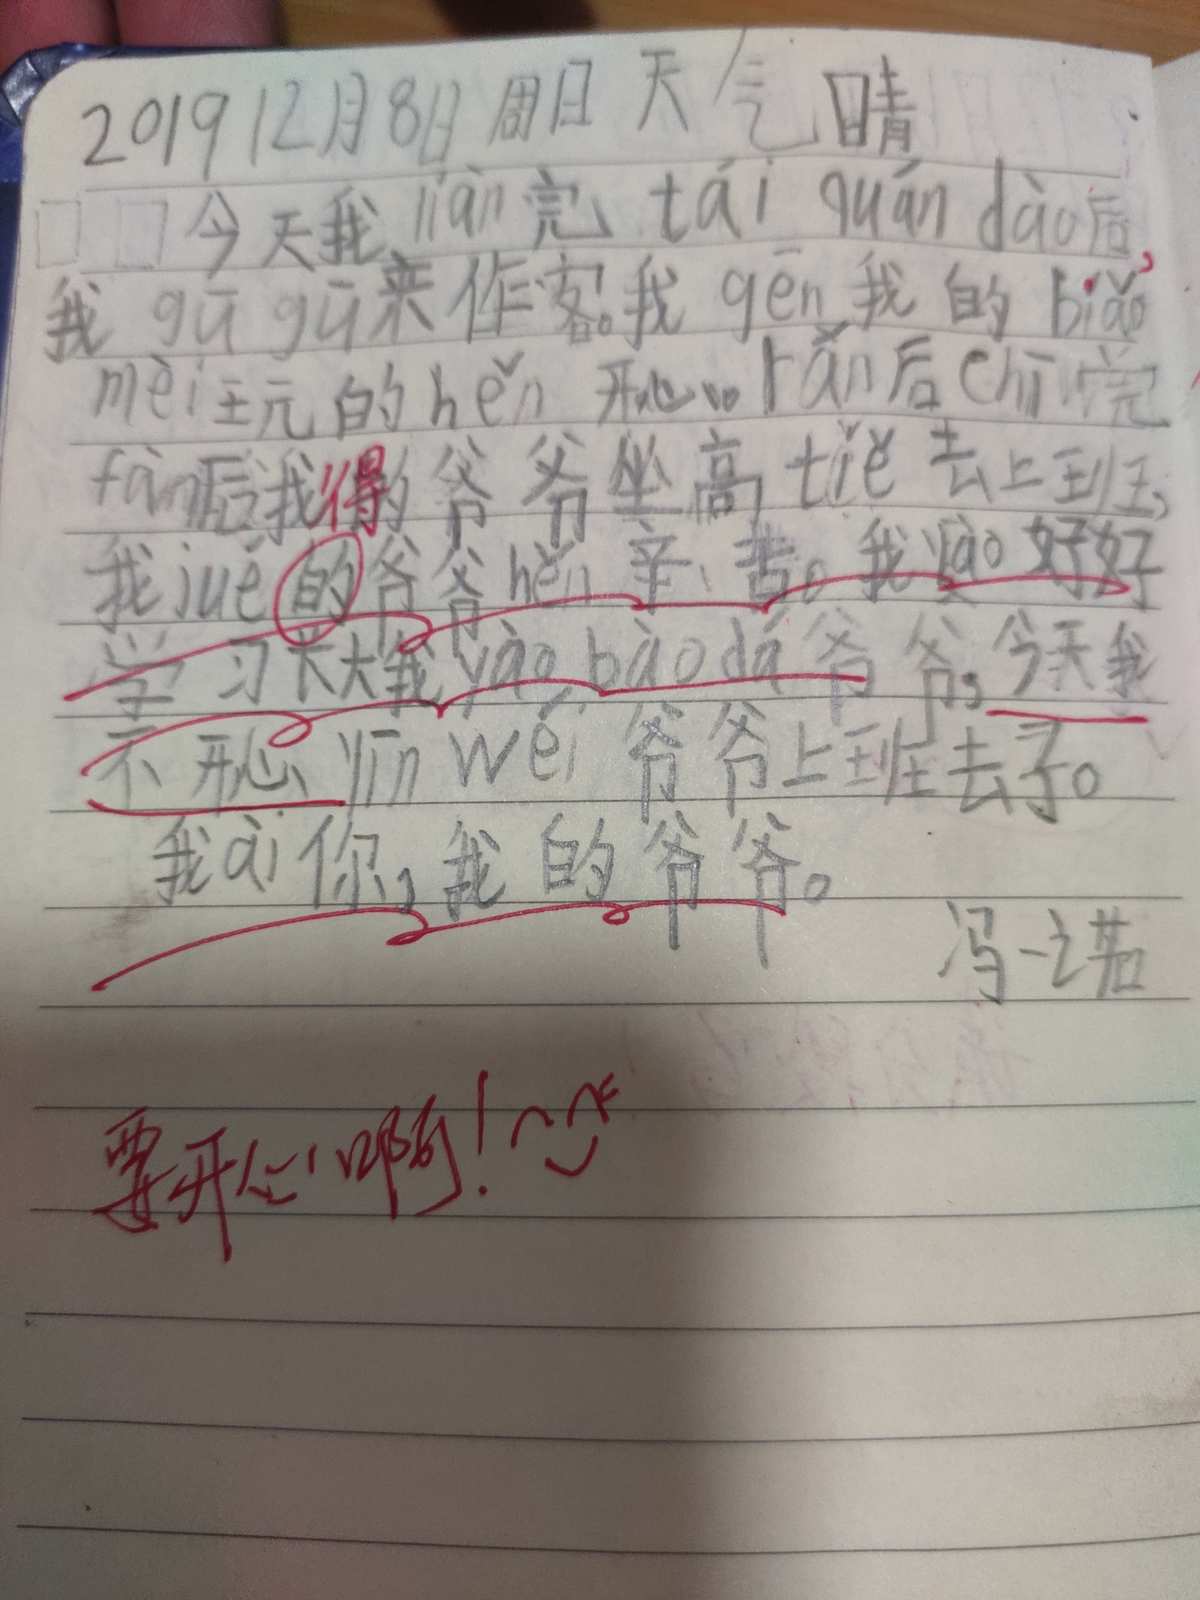 2019 12月8日 周日 天气晴
今天我liàn完 tái quán dào后,
我 gū gū来作客。我 gēn 我 的 biǎo
mèi玩的hěn 开心。rǎn后chī完
fàn后我的爷爷坐高tiě去上班,
得
我jué的爷爷hěn辛苦。我yào好好
学习长大我yào bào dá爷爷,今天我
不开心yīn wéi爷爷上班去了。
我ài你,我的爷爷。
冯一诺
要开心啊!